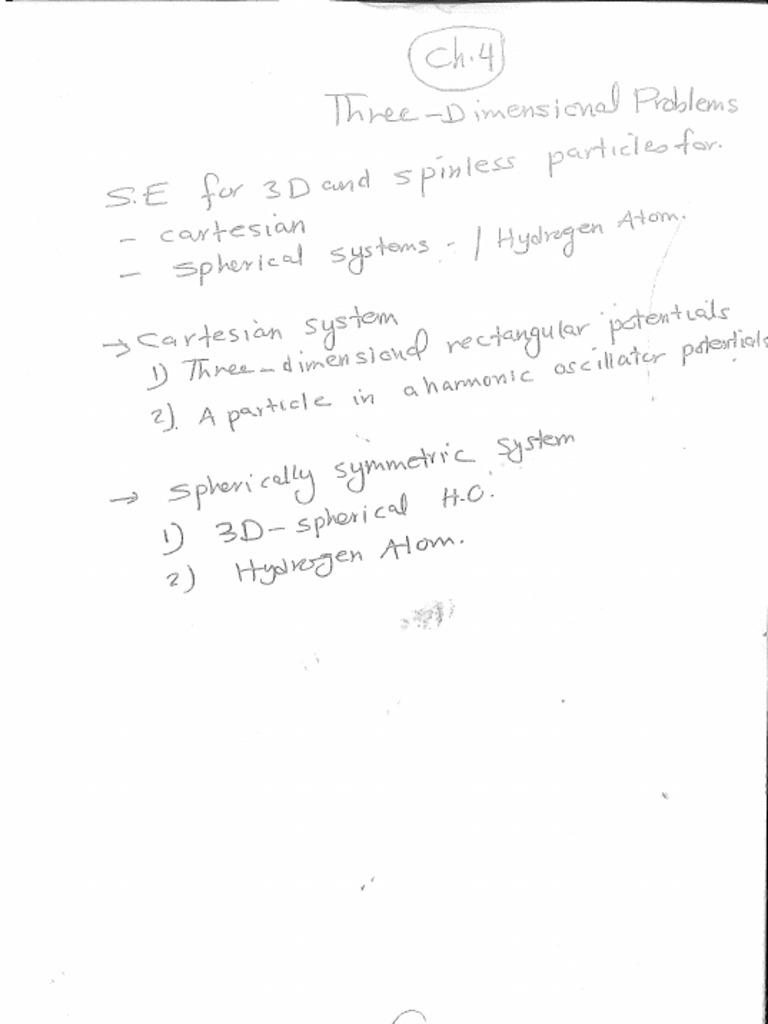 Ch.4
Three-Dimensional Problems
S.E for 3D and spinless particles for.
- cartesian
- spherical systems - / Hydrogen Atom.
→ Cartesian system
1) Three-dimensional rectangular potentials
2). A particle in a harmonic oscillator potentials
→ Spherically symmetric system
1) 3D-spherical H.O.
2) Hydrogen Atom.